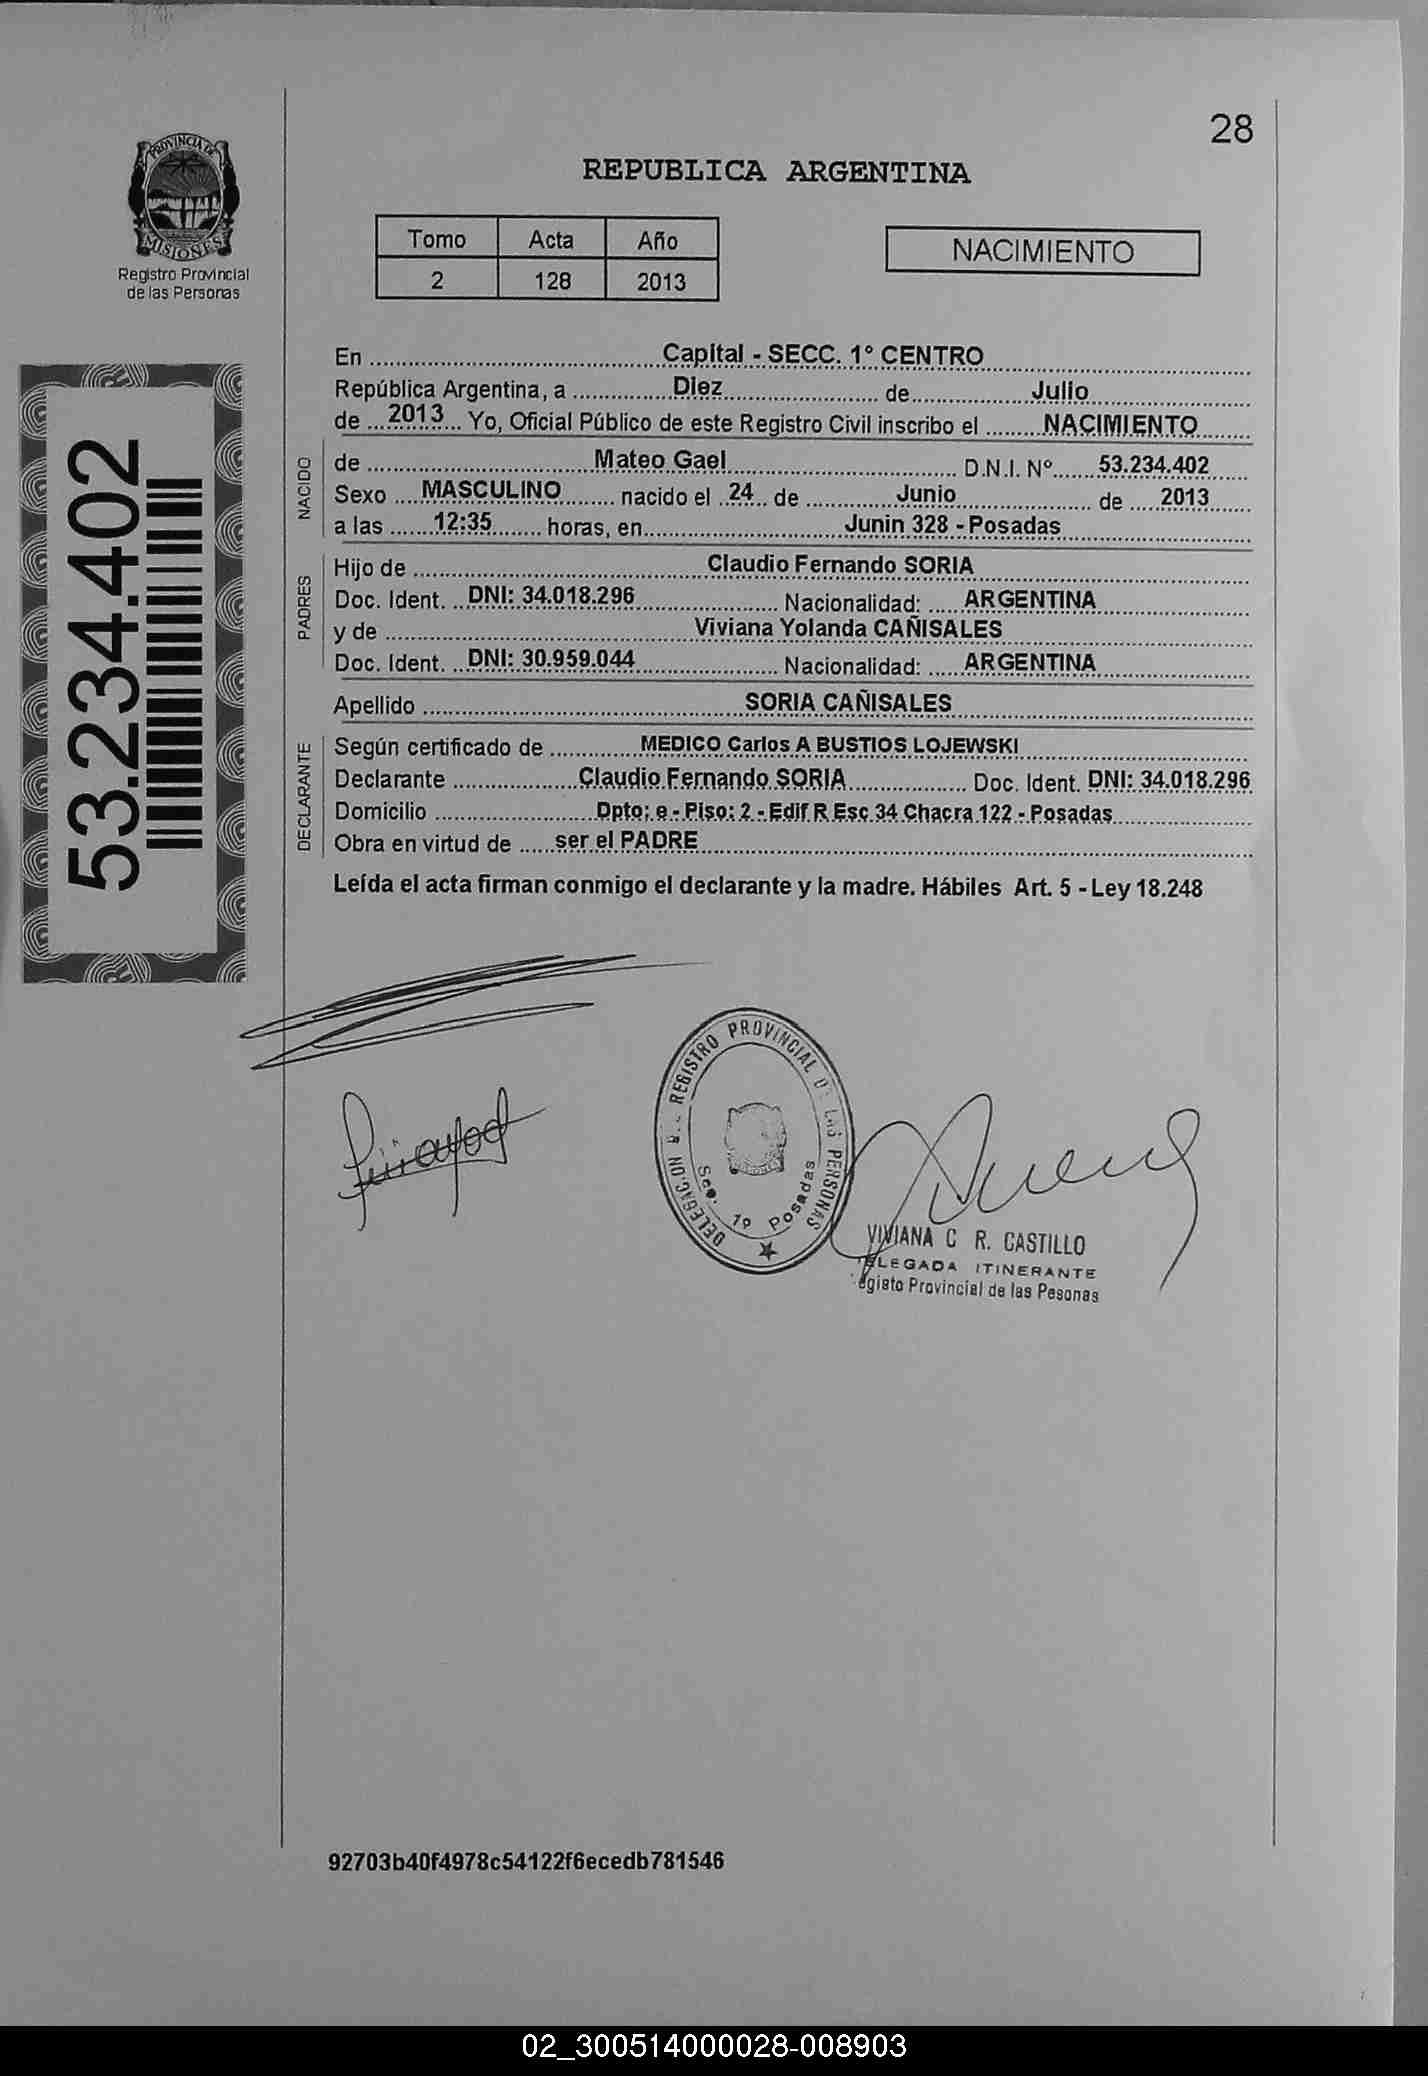 28
PROVINCIA DE
MISIONES
Registro Provincial
de las Personas
REPUBLICA ARGENTINA
Tomo Acta Año
2 128 2013
NACIMIENTO
53.234.402
En Capital - SECC. 1° CENTRO
República Argentina, a Diez de Julio
de 2013 Yo, Oficial Público de este Registro Civil inscribo el NACIMIENTO
NACIDO
de Mateo Gael D.N.I. Nº 53.234.402
Sexo MASCULINO nacido el 24 de Junio de 2013
a las 12:35 horas, en Junin 328 - Posadas
PADRES
Hijo de Claudio Fernando SORIA
Doc. Ident. DNI: 34.018.296 Nacionalidad: ARGENTINA
y de Viviana Yolanda CAÑISALES
Doc. Ident. DNI: 30.959.044 Nacionalidad: ARGENTINA
Apellido SORIA CAÑISALES
DECLARANTE
Según certificado de MEDICO Carlos A BUSTIOS LOJEWSKI
Declarante Claudio Fernando SORIA Doc. Ident. DNI: 34.018.296
Domicilio Dpto: e - Piso: 2 - Edif R Esc 34 Chacra 122 - Posadas
Obra en virtud de ser el PADRE
Leída el acta firman conmigo el declarante y la madre. Hábiles Art. 5 - Ley 18.248
REGISTRO PROVINCIAL LAS PERSONAS
Sec. 1º Posadas
VIVIANA C R. CASTILLO
ELEGADA ITINERANTE
egisto Provincial de las Pesonas
92703b40f4978c54122f6ecedb781546
02_300514000028-008903